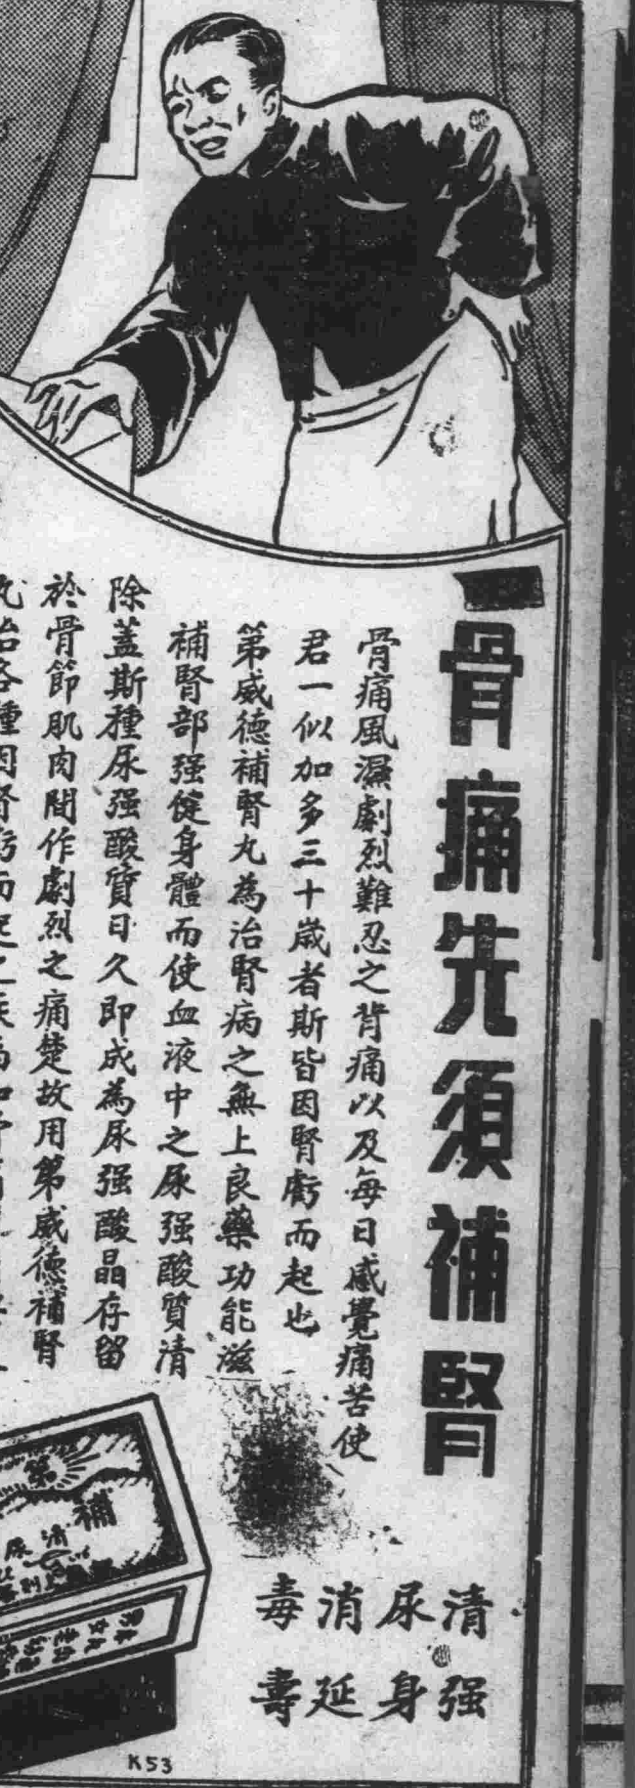 骨痛先須補腎
骨痛風濕劇烈難忍之背痛以及每日感覺痛苦使
君一似加多三十歲者斯皆因腎虧而起也
第威德補腎丸為治腎病之無上良藥功能滋
補腎部强健身體而使血液中之尿强酸質清
除蓋斯種尿强酸質日久即成為尿强酸晶存留
於骨節肌肉間作劇烈之痛楚故用第威德補腎
丸治各種因腎虧而起之疾
清尿消毒
强身延壽
第
補
清尿
K53